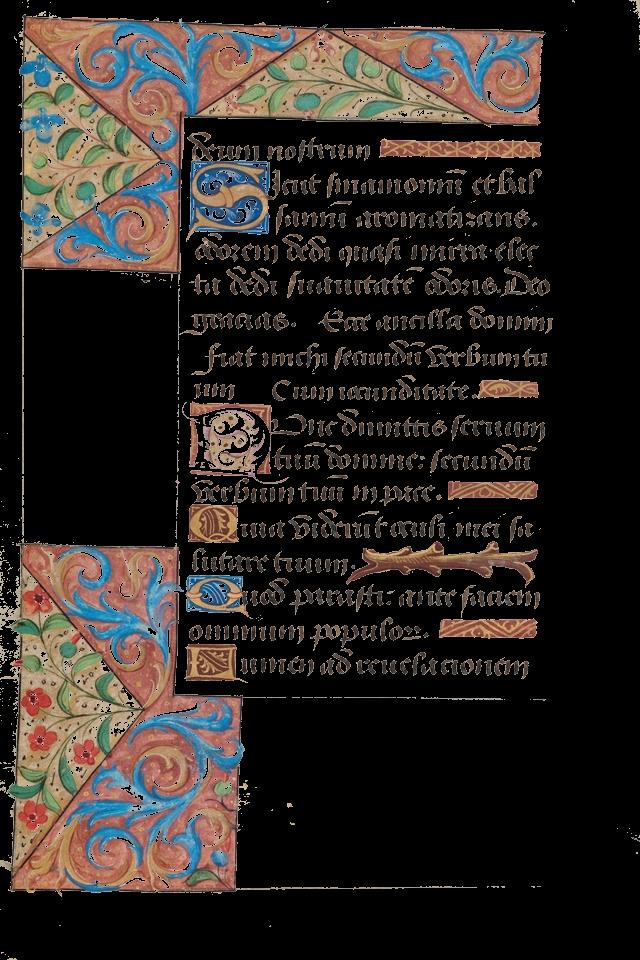 deum nostrum
Sicut sinamomũ et bal
samũ aromatizans.
odorem dedi quasi mirra elec
ta dedi suauitatẽ odoris. Deo
gracias. Ecce ancilla domini
fiat michi secundũ verbum tu
um Cum iocunditate.
Nunc dimittis seruum
tuũ domine: secundũ
verbum tuũ in pace.
Quia viderũt oculi mei sa
lutare tuum.
Quod parasti: ante faciem
omnium populoꝝ.
Lumen ad reuelacionem